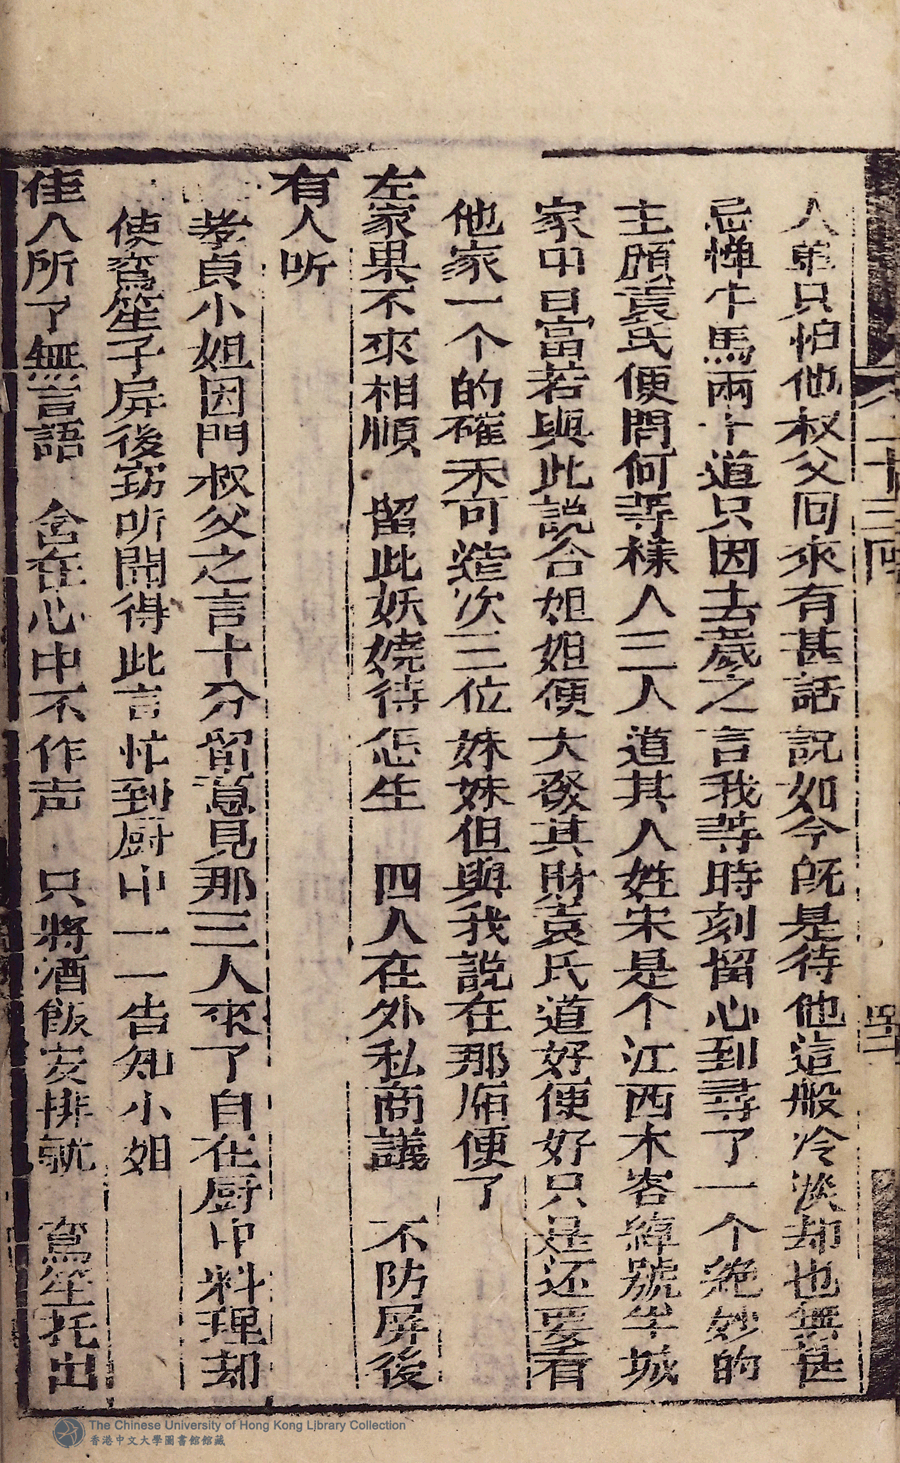 人弟只怕他叔父回來有甚話說如今既是待他這般冷淡却也無甚
忌憚牛馬兩个道只因去歲之言我等時刻留心到尋了一个絶妙的
主顧袁氏便問何等樣人三人道其人姓宋是个江西木客綽號半城
家中巨富若與此説合姐姐便大發其財袁氏道好便好只是还要看
他家一个的確不可造次三位妹妹但與我説在那廂便了
左家果不來相順 留此妖嬈待怎生 四人在外私商議 不防屏後
有人听
孝貞小姐因門叔父之言十分留意見那三人來了自在厨中料理却
使鴛笙子屏後窃听聞得此言忙到厨中一一告知小姐
佳人所了無言語 含在心中不作声 只將酒飯安排就 鴛笙托出
二十三回
The Chinese University of Hong Kong Library Collection
香港中文大學圖書館館藏